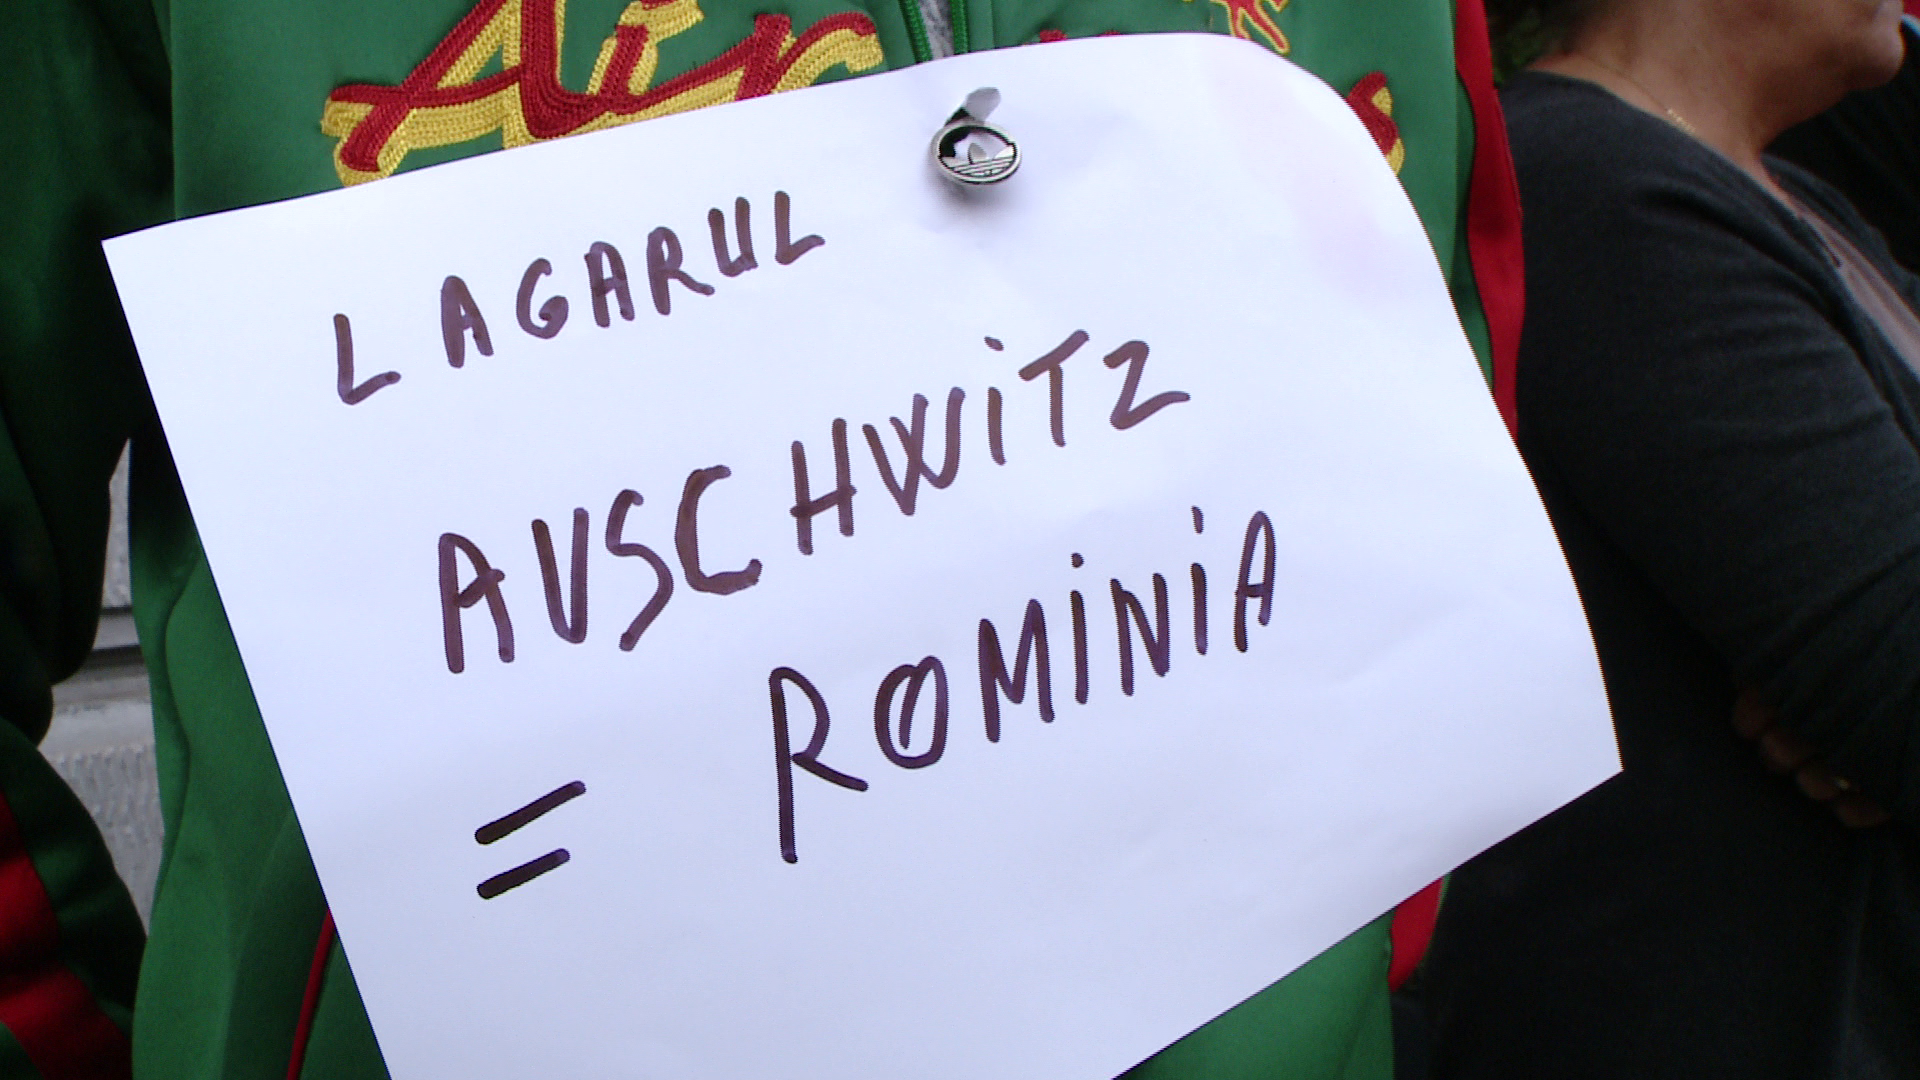 Air
LAGARUL
AUSCHWiTZ
= ROMiNiA